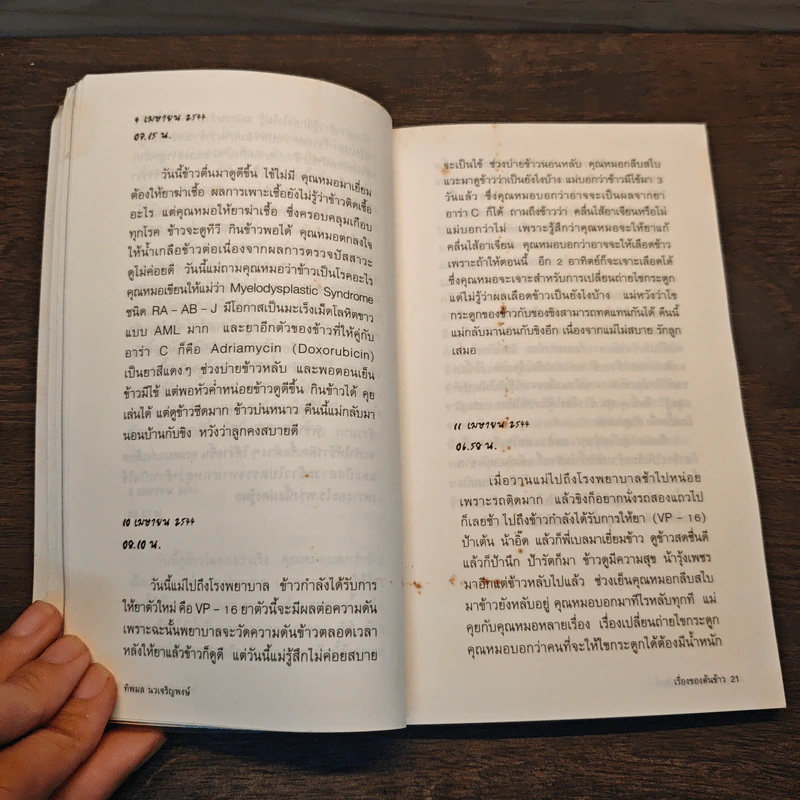 ๙ เมษายน 2544
07.15 น.
วันนี้ข้าวตื่นมาดูดีขึ้น ไข้ไม่มี คุณหมอมาเยี่ยม
ต้องให้ยาฆ่าเชื้อ ผลการเพาะเชื้อยังไม่รู้ว่าข้าวติดเชื้อ
อะไร แต่คุณหมอให้ยาฆ่าเชื้อ ซึ่งครอบคลุมเกือบ
ทุกโรค ข้าวจะดูทีวี กินข้าวพอได้ คุณหมอตกลงใจ
ให้น้ำเกลือข้าวต่อเนื่องจากผลการตรวจปัสสาวะ
ดูไม่ค่อยดี วันนี้แม่ถามคุณหมอว่าข้าวเป็นโรคอะไร
คุณหมอเขียนให้แม่ว่า Myelodysplastic Syndrome
ชนิด RA – AB – J มีโอกาสเป็นมะเร็งเม็ดโลหิตขาว
แบบ AML มาก และยาอีกตัวของข้าวที่ให้คู่กับ
อาร่า C ก็คือ Adriamycin (Doxorubicin)
เป็นยาสีแดงๆ ช่วงบ่ายข้าวหลับ และพอตอนเย็น
ข้าวมีไข้ แต่พอหัวค่ำหน่อยข้าวดูดีขึ้น กินข้าวได้ คุย
เล่นได้ แต่ดูข้าวซีดมาก ข้าวบ่นหนาว คืนนี้แม่กลับมา
นอนบ้านกับชิง หวังว่าลูกคงสบายดี
10 เมษายน 2544
08.10 น.
วันนี้แม่ไปถึงโรงพยาบาล ข้าวกำลังได้รับการ
ให้ยาตัวใหม่ คือ VP – 16 ยาตัวนี้จะมีผลต่อความดัน
เพราะฉะนั้นพยาบาลจะวัดความดันข้าวตลอดเวลา
หลังให้ยาแล้วข้าวก็ดูดี แต่วันนี้แม่รู้สึกไม่ค่อยสบาย
ทิพมล นวเจริญพงษ์
จะเป็นไข้ ช่วงบ่ายข้าวนอนหลับ คุณหมอกลีบสไบ
แวะมาดูข้าวว่าเป็นยังไงบ้าง แม่บอกว่าข้าวมีไข้มา 3
วันแล้ว ซึ่งคุณหมอบอกว่าอาจจะเป็นผลจากยา
อาร่า C ก็ได้ ถามถึงข้าวว่า คลื่นไส้อาเจียนหรือไม่
แม่บอกว่าไม่ เพราะรู้สึกว่าคุณหมอจะให้ยาแก้
คลื่นไส้อาเจียน คุณหมอบอกว่าอาจจะให้เลือดข้าว
เพราะถ้าให้ตอนนี้ อีก 2 อาทิตย์ก็จะเจาะเลือดได้
ซึ่งคุณหมอจะเจาะสำหรับการเปลี่ยนถ่ายไขกระดูก
แต่ไม่รู้ว่าผลเลือดข้าวเป็นยังไงบ้าง แม่หวังว่าไข
กระดูกของข้าวกับของชิงสามารถทดแทนกันได้ คืนนี้
แม่กลับมานอนกับชิงอีก เนื่องจากแม่ไม่สบาย รักลูก
เสมอ
11 เมษายน 2544
06.58 น.
เมื่อวานแม่ไปถึงโรงพยาบาลช้าไปหน่อย
เพราะรถติดมาก แล้วชิงก็อยากนั่งรถสองแถวไป
ก็เลยช้า ไปถึงข้าวกำลังได้รับการให้ยา (VP – 16)
ป้าเต้น น้าอี๊ด แล้วก็พี่เบลมาเยี่ยมข้าว ดูข้าวสดชื่นดี
แล้วก็ป้านึก ป้ารัตก็มา ข้าวดูมีความสุข น้ารุ้งเพชร
มาอีกแต่ข้าวหลับไปแล้ว ช่วงเย็นคุณหมอกลีบสไบ
มาข้าวยังหลับอยู่ คุณหมอบอกมาทีไรหลับทุกที แม่
คุยกับคุณหมอหลายเรื่อง เรื่องเปลี่ยนถ่ายไขกระดูก
คุณหมอบอกว่าคนที่จะให้ไขกระดูกได้ต้องมีน้ำหนัก
เรื่องของต้นข้าว 21